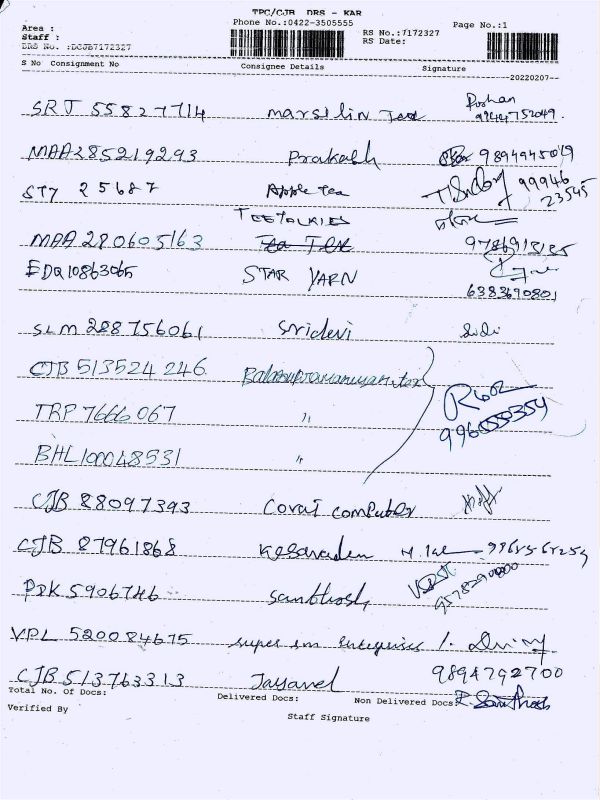 TPC/CJB DRS - KAR
Area :
Phone No.:0422-3505555
Page No.:1
Staff :
RS No.:7172327
DRS No. :DCJB7172327
RS Date:
S No Consignment No Consignee Details Signature
20220207
SRJ 55827714 marsilin Tex Roshan
9944752049
MAA285219293 Prakash 9894945019
ST7 25687 Apple tea 99946
23545
TEETOLKIES
MAA 280605163
EDQ10863065 STAR YARN
6383690801
SLM 288756061 Sridevi
CJB 513524 246 Balasupramaniyam tex
TRP 7666067 "
BHL100048531 "
CJB 88097393 Covai computer
CJB 87961868
PDK 5906746 Santhosh
VPL 520084675 super sm Enterprises
CJB 513763313 Jayavel 9894792700
Total No. Of Docs: Delivered Docs: Non Delivered Docs:
R. Santhosh
Verified By
Staff Signature